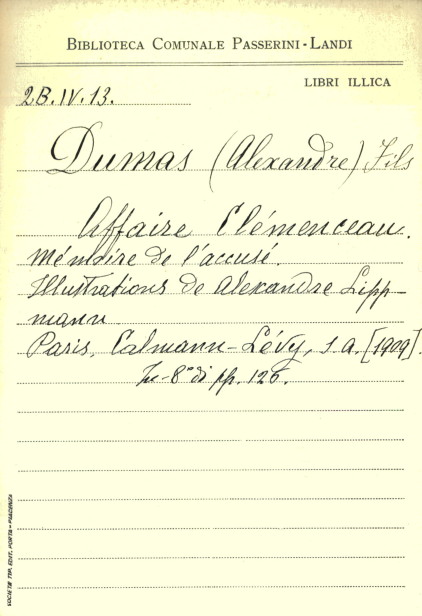 BIBLIOTECA COMUNALE PASSERINI-LANDI
LIBRI ILLICA
2B.IV.13.
Dumas (Alexandre) Fils
Affaire Clémenceau.
Mémoire de l'accusé.
Illustrations de Alexandre Lipp-
mann
Paris, Calmann-Lévy, s.a. [1909].
In-8° di pp. 126.
SOCIETÀ TIP. EDIT. PORTA-PIACENZA